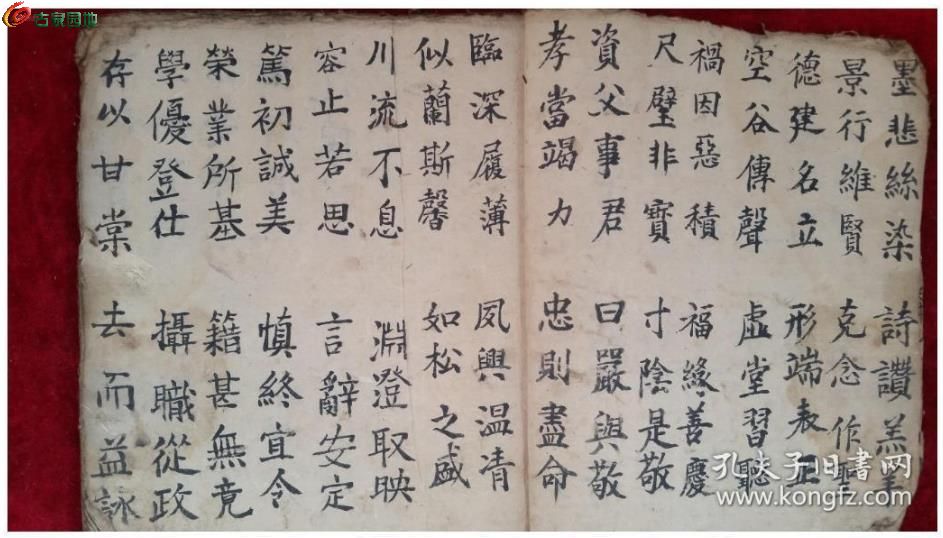 古泉园地
墨悲絲染 詩讚羔羊
景行維賢 克念作聖
德建名立 形端表正
空谷傳聲 虛堂習聽
禍因惡積 福緣善慶
尺璧非寶 寸陰是敬
資父事君 曰嚴與敬
孝當竭力 忠則盡命
臨深履薄 夙興温凊
似蘭斯馨 如松之盛
川流不息 淵澄取映
容止若思 言辭安定
篤初誠美 慎終宜令
榮業所基 籍甚無竟
學優登仕 攝職從政
存以甘棠 去而益詠
孔夫子旧书网
www.kongfz.com